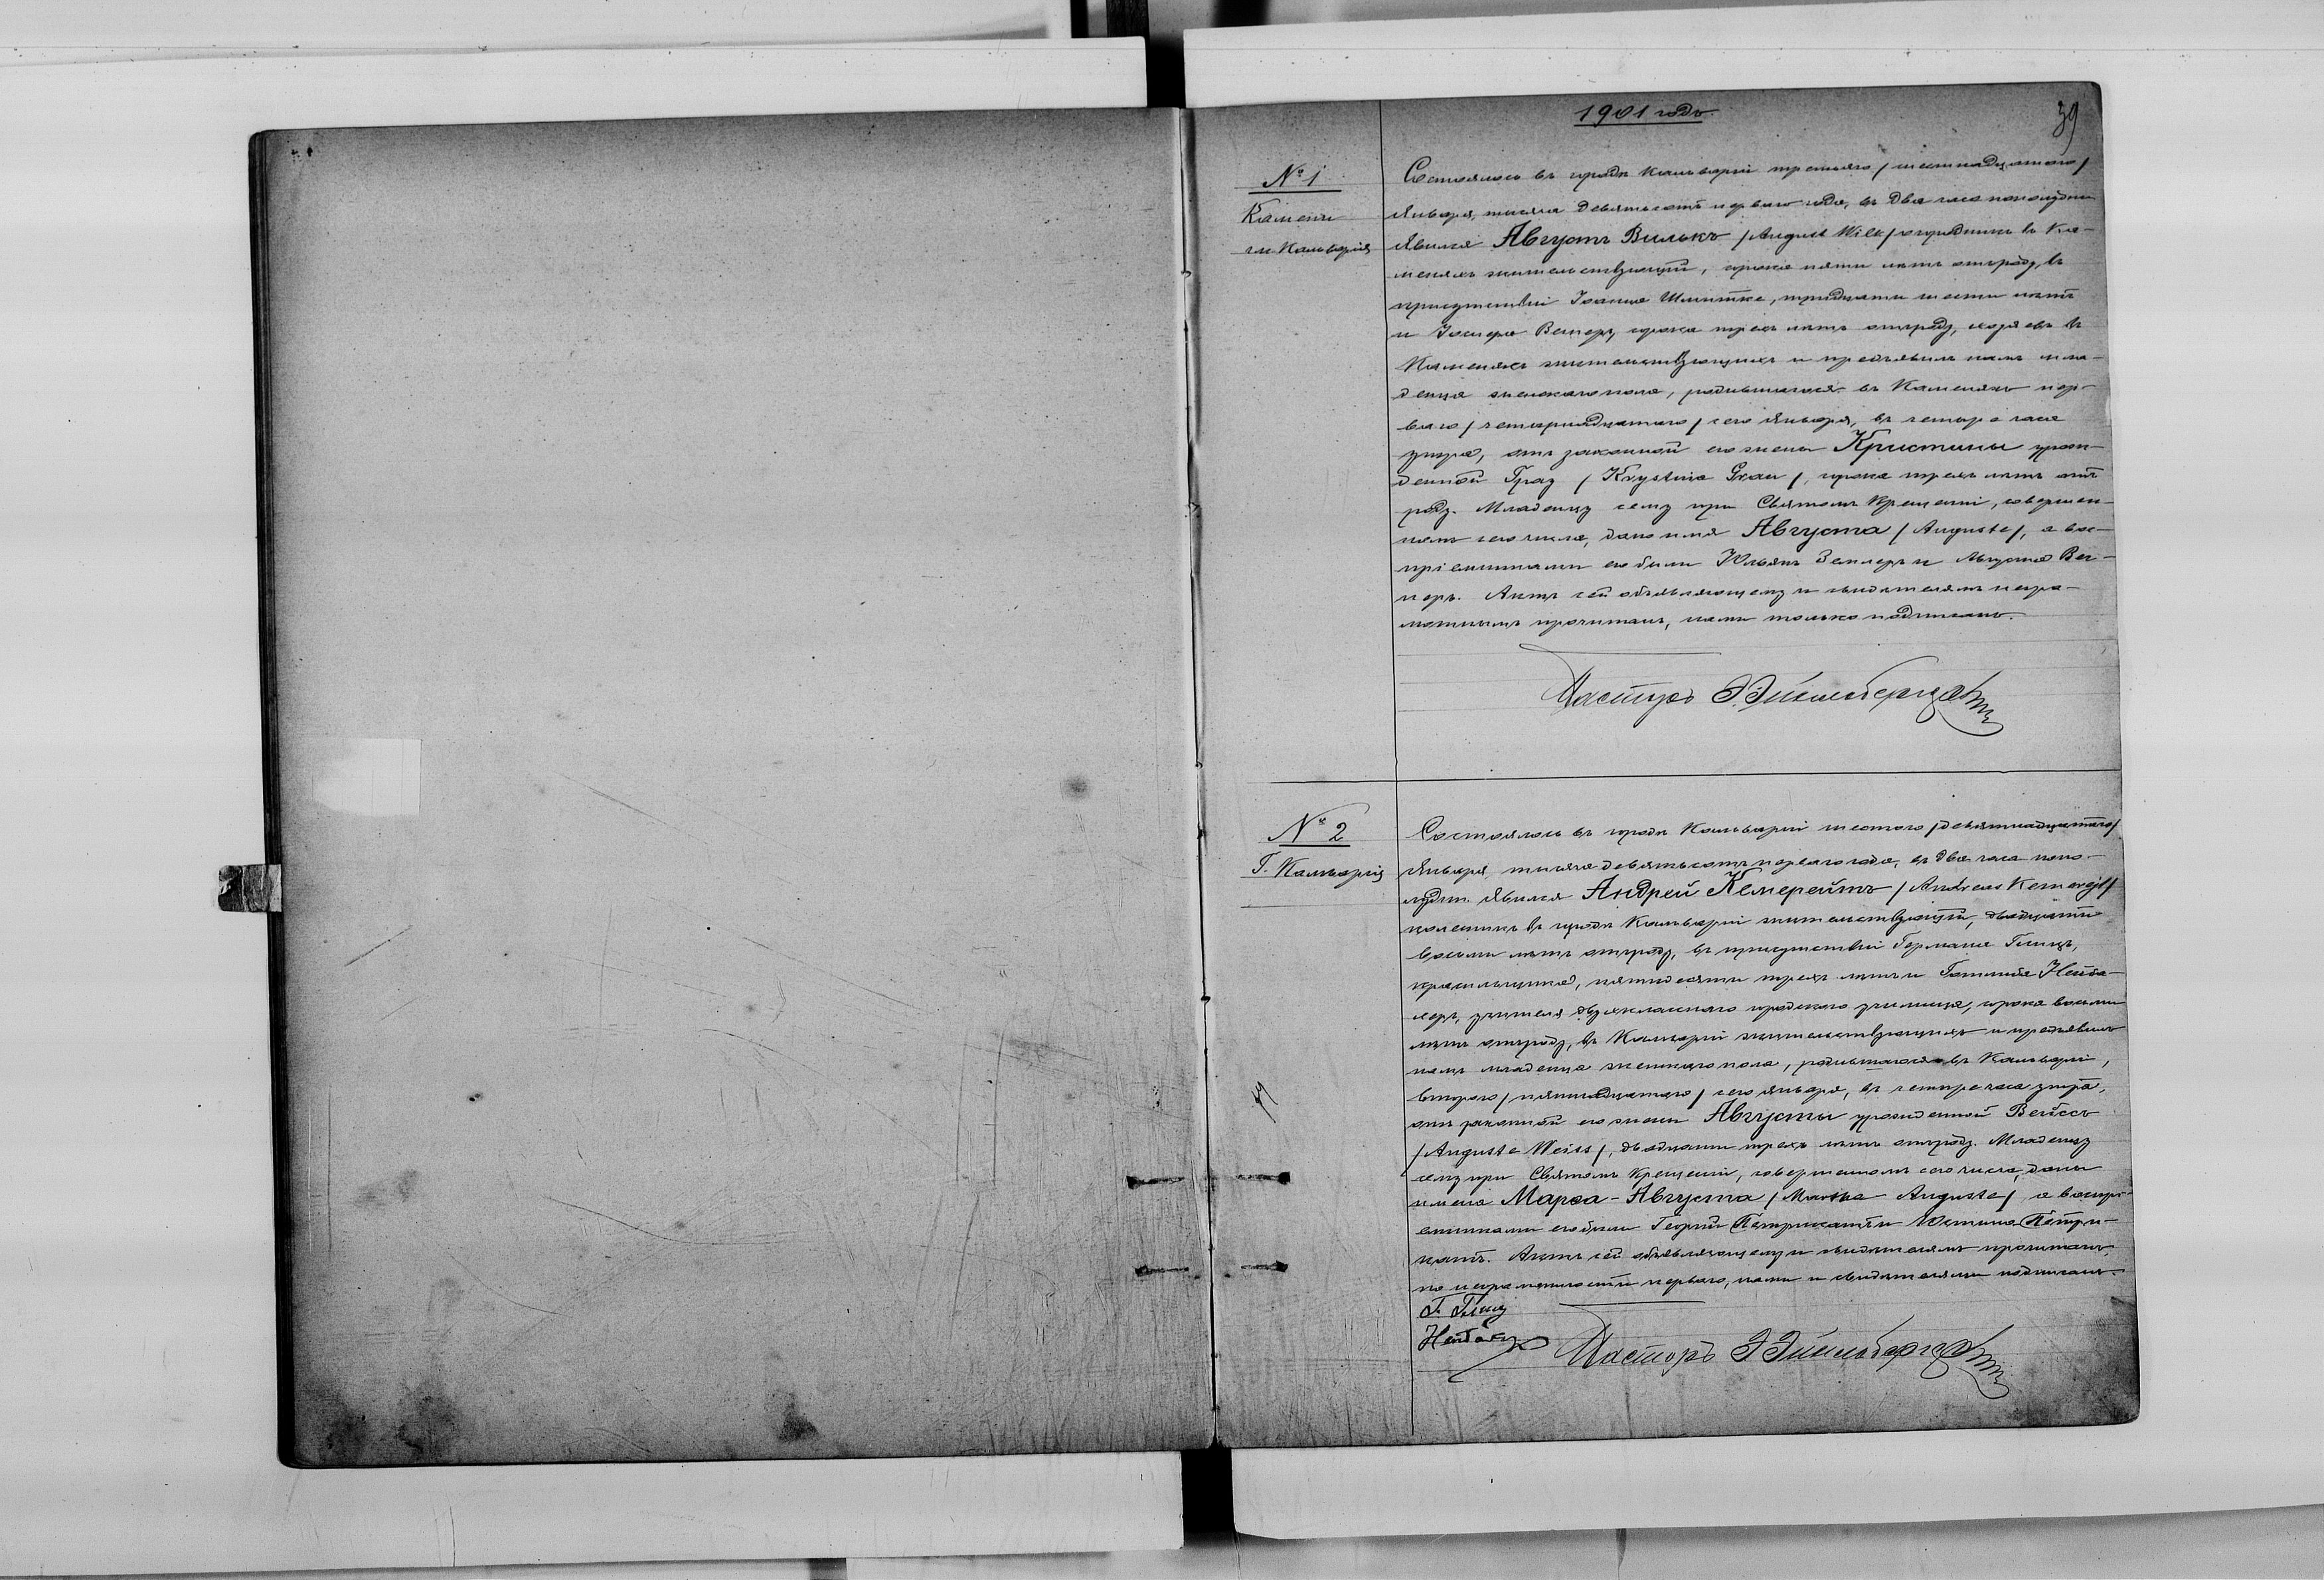 1901 годъ.
39
№ 1
Камени
гм. Кальварія
Состоялось въ городѣ Кальваріи третьяго /шестнадцатаго/
Января, тысяча девятьсотъ перваго года, въ два часа пополудни
Явился Августъ Вилькъ /August Wilk/ огородникъ въ Ка-
меняхъ жительствующій, сорока пяти лѣтъ отъ роду, въ
присутствіи Іоанна Шмитке, тридцати шести лѣтъ
и Іосифа Вегнеръ, сорока трехъ лѣтъ отъ роду, въ
Каменяхъ жительствующихъ и предъявилъ намъ мла-
денца женскаго пола, родившагося въ Каменяхъ пер-
ваго /четырнадцатаго/ сего Января, въ четыре часа
утра, отъ законной его жены Кристины урож-
денной Грау /Krystina Grau/, сорока трехъ лѣтъ отъ
роду. Младенцу сему при Святомъ Крещеніи, совершен-
номъ сего числа, дано имя Августа /Auguste/, а вос-
пріемниками его были Юльянъ и Августа Вег-
неръ. Актъ сей объявляющему и свидѣтелямъ негра-
мотнымъ прочитанъ, нами только подписанъ.
Пасторъ
№ 2
Г. Кальварія
Состоялось въ городѣ Кальваріи шестого /девятнадцатаго/
Января, тысяча девятьсотъ перваго года, въ два часа попо-
лудни. Явился Андрей Кемерейтъ /Andreas Kemerejt/
въ городѣ Кальваріи жительствующій, двадцати
восьми лѣтъ отъ роду, въ присутствіи Германа Глинцъ,
красильщика, пятидесяти трехъ лѣтъ и Готлиба Нейба-
херъ, учителя двухкласснаго городского училища, сорока восьми
лѣтъ отъ роду, въ Кальваріи жительствующихъ и предъявилъ
намъ младенца женскаго пола, родившагося въ Кальваріи,
второго /пятнадцатаго/ сего Января, въ четыре часа утра,
отъ законной его жены Августы урожденной Вейссъ
/Auguste Weiss/, двадцати трехъ лѣтъ отъ роду. Младенцу
сему при Святомъ Крещеніи, совершенномъ сего числа, даны
имена Марѳа-Августа /Martha Auguste/, а воспрі-
емниками его были Георгій Петрикатъ и Юстина Петри-
катъ. Актъ сей объявляющему и свидѣтелямъ прочитанъ,
по неграмотности перваго, нами и свидѣтелями подписанъ.
Г. Глинц
Нейбахеръ
Пасторъ